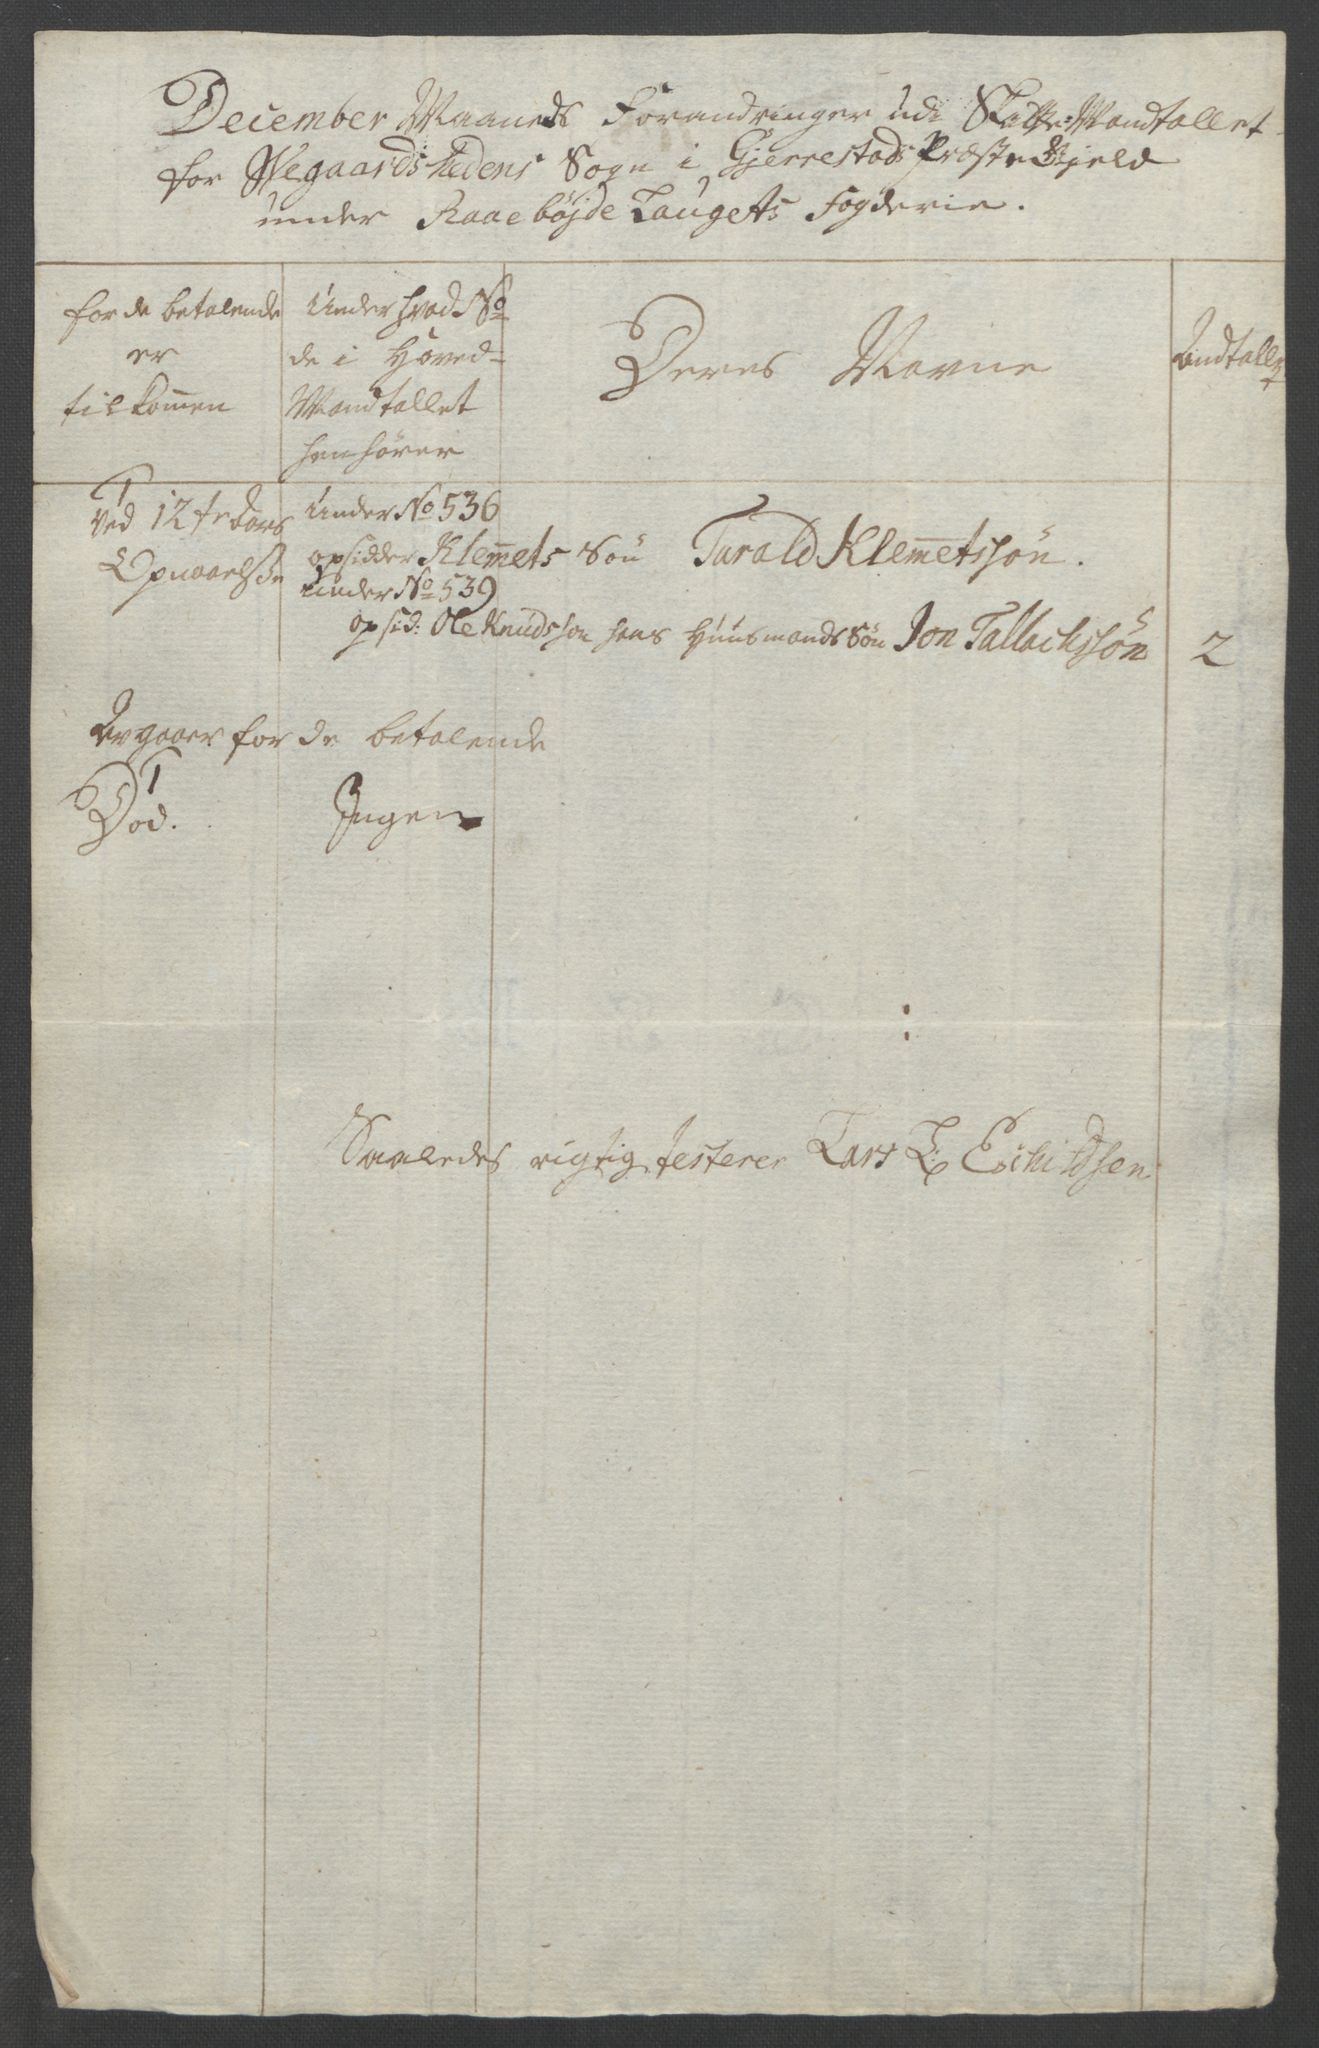 December Maaneds Forandringer udi Skatte-Mandtallet
for Wegaardshedens Sogn i Gjerrestads Præste Gjeld
under Raaebøjde Laugets Fogderie.
for de betalende
er
tilkommen
Under hvad No
de i Hoved-
Mandtallet
henhører
Deres Navne
Andtallet
1
Ved 12te Aars
Opnaaelse
Under No 536
opsidder Klemmets Søn Tarald Klemmetssøn.
Under No 539
opsid: Ole Knudsson hans Huusmands Søn Jon Tallachssøn 2
Avgaaer for de betalende
1
Død. Ingen
Saaledes rigtig testerer Lars L: Eschildsen